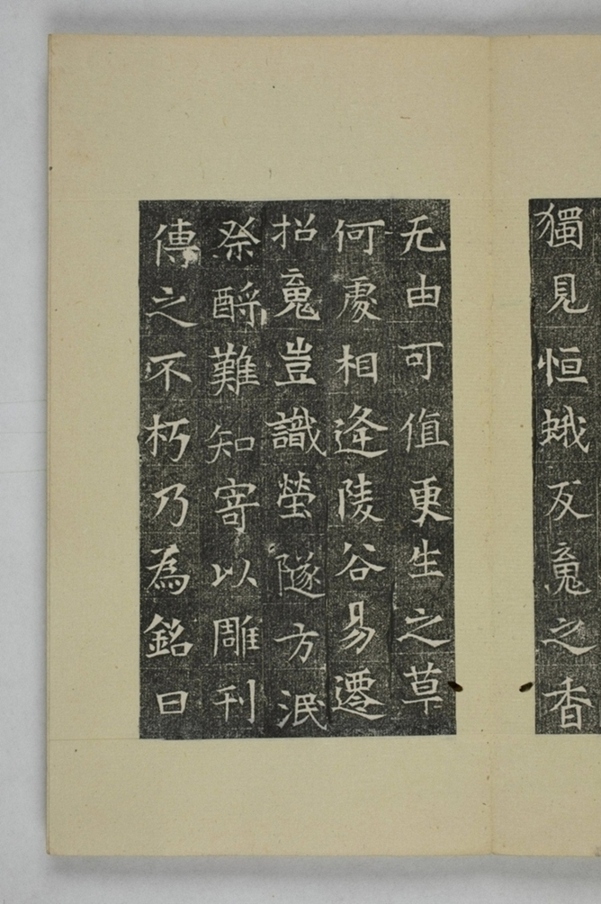 獨見恒蛾反䰟之香
无由可值更生之草
何處相逢陵谷易遷
招䰟豈識塋隧方泯
祭酹難知寄以雕刊
傳之不朽乃為銘曰